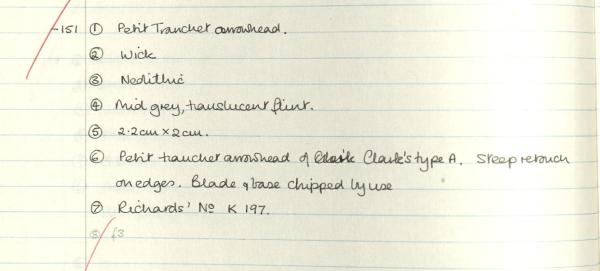 -151 ① Petit Tranchet arrowhead.
② Wick
③ Neolithic
④ Mid grey, translucent flint.
⑤ 2.2cm × 2cm.
⑥ Petit tranchet arrowhead of Clark's type A. Steep retouch
on edges. Blade & base chipped by use
⑦ Richards' Nº K 197.
⑧ £3